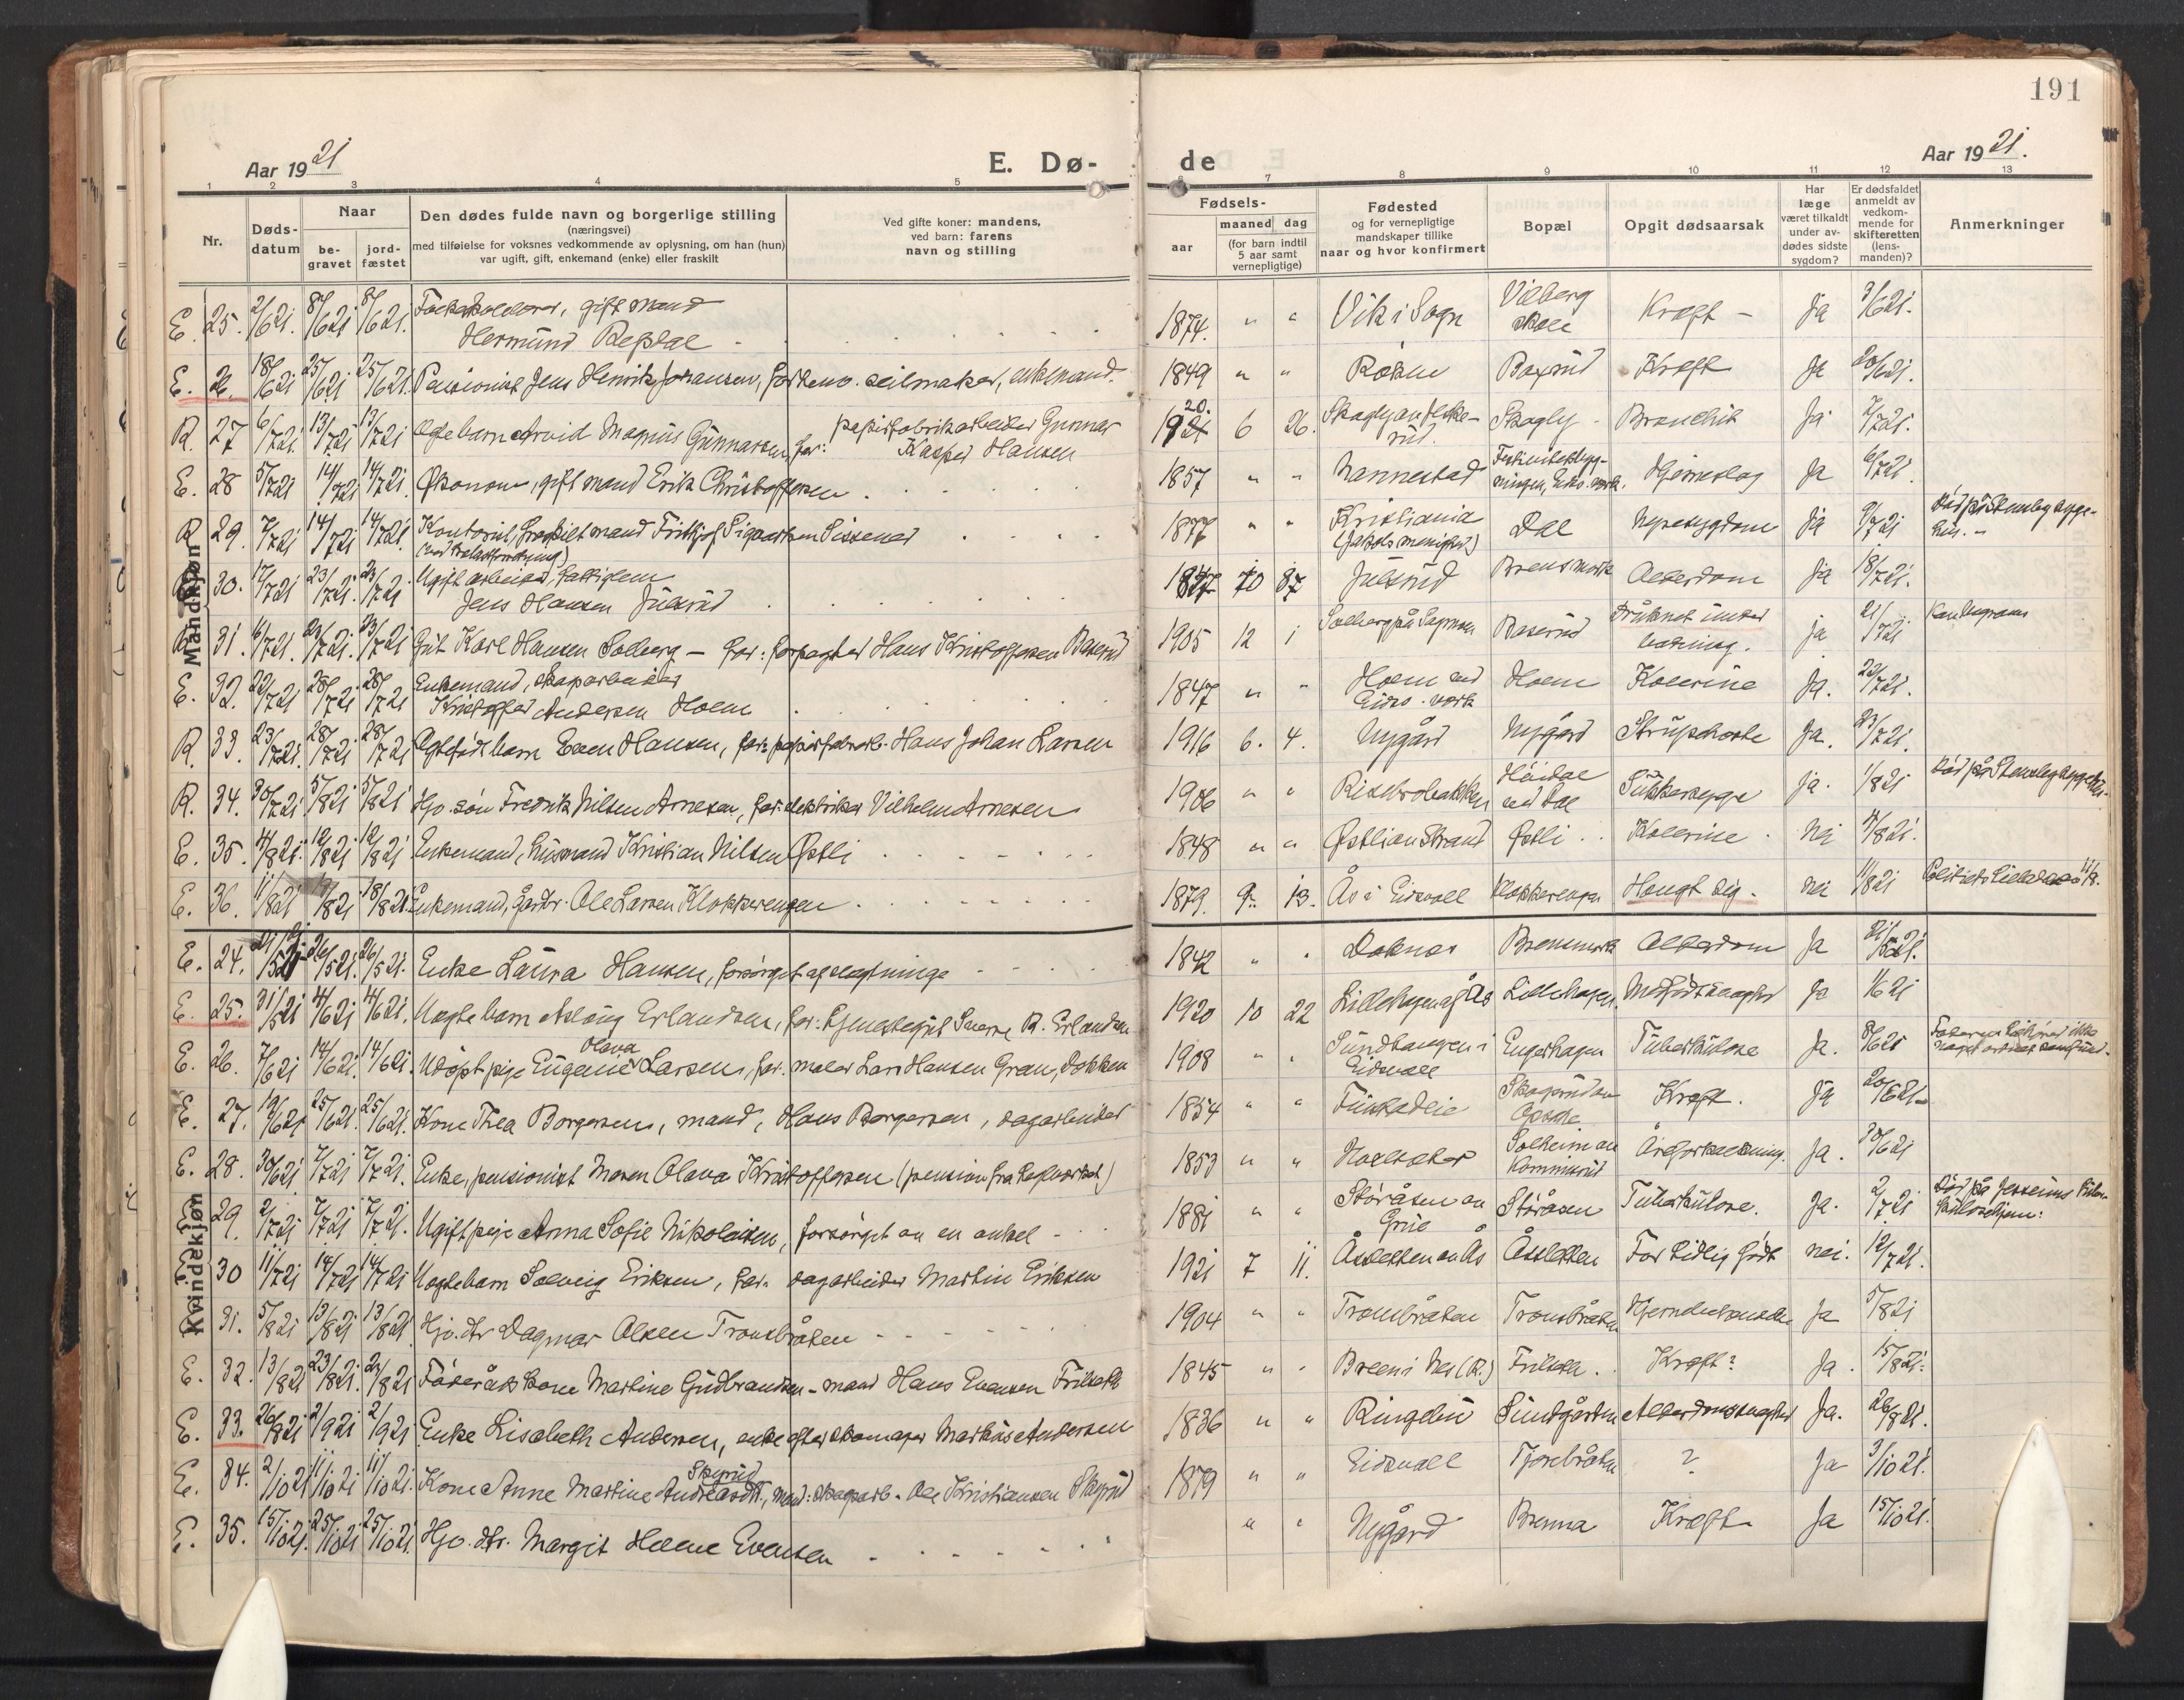 191
Aar 1921
E. Dø-
de
Aar 1921.
1 2 3 4 5 6 7 8 9 10 11 12 13
Nr.
Døds-
datum
Naar
be-
gravet
jord-
fæstet
Den dødes fulde navn og borgerlige stilling
(næringsvei)
med tilføielse for voksnes vedkommende av oplysning, om han (hun)
var ugift, gift, enkemand (enke) eller fraskilt
Ved gifte koner: mandens,
ved barn: farens
navn og stilling
Fødsels-
aar
maaned dag
(for barn indtil
5 aar samt
vernepligtige)
Fødested
og for vernepligtige
mandskaper tillike
naar og hvor konfirmert
Bopæl
Opgit dødsaarsak
Har
læge
været tilkaldt
under av-
dødes sidste
sygdom?
Er dødsfaldet
anmeldt av
vedkom-
mende for
skifteretten
(lens-
manden)?
Anmerkninger
Mandkjøn
E. 25. 2/6 21. 8/6 21 8/6 21. gift mand
Hermund Refsdal 1874. " " Vik i Sogn Vilberg skole Kræft - Ja 3/6 21.
E. 26. 18/6 21 25/6 21 25/6 21. Pensionist Jens Henrik Johansen, forhenv. seilmaker, enkemand. 1849 " " Røken Bøxrud Kræft Ja 20/6 21.
R. 27 6/7 21 13/7 21 13/7 21 Ægte barn Arvid Magnus Gunnarsen, far: papirfabrikarbeider Gunnar
Kasper Hansen 1920. 6 26. Skogly Bronchit Ja 7/7 21.
E. 28 5/7 21 14/7 21 14/7 21. Økonom, gift mand Erik Christoffersen 1857 " " Nannestad Hjerneslag Ja 6/7 21.
R 29. 7/7 21 14/7 21 14/7 21. Kontorist, fraskilt mand Fritjof Sissener
1877 " " Kristiania
(Jakobs menighet) Dal Nyresygdom Ja 9/7 21 Død på Stensby syge-
hus.
30. 17/7 21 23/7 21. 23/7 21 Ugift arbeider, fattiglem
Jens Hansen Julsrud Julsrud Alderdom Ja 18/7 21.
31. 16/7 21. 23/7 21. 23/7 21 Gut Karl Hansen Solberg - far: forpagter Hans Kristoffersen Baserud 1905 12 1 Baserud Druknet under
badning. ja 21/7 21
E. 32. 22/7 21 28/7 21 28/7 21 Enkemand, skogarbeider
Kristoffer Andersen Holm 1847 " " Holm ved
Eidsv. verk Holm Kolerine Ja. 22/7 21.
R. 33. 23/7 21. 28/7 21 28/7 21 Ægtefødt barn Even Hansen, far: papirfabrarb. Hans Johan Larsen 1916 6. 4. Nygård Nygård Strupehoste Ja. 23/7 21.
R. 34. 30/7 21 5/8 21 5/8 21 Hjv. søn Fredrik Nilsen Arnesen, far: elektriker Vilhelm Arnesen 1906 " " Høidal
ved Dal Sukkersyge ja. 1/8 21 Død på Stensby sygehus.
E. 35. 4/8 21. 12/8 21 12/8 21 Enkemand, husmand Kristian Nilsen Østli 1848 " " Østli Kolerine nei 4/8 21.
E. 36. 11/8 21 18/8 21 18/8 21. Enkemand, Gårdbr. Ole Larsen Klokkerengen 1879. 9. 13. Ås i Eidsvoll Klokkerengen Hengt sig. nei 11/8 21
Kvindekjøn
E. 24. 21/5 21 26/5 21. 26/5 21. Enke Laura Hansen, forsørget af slegtninge 1842 " " Doknes Alderdom Ja 21/5 21.
E. 25. 31/5 21 4/6 21 4/6 21. Uægte barn Aslaug Erlandsen, far: tjenestegut Sverre R. Erlandsen 1920 10 22 Lillehagen af Ås Lillehagen Medfødt svaghet Ja 1/6 21
E. 26. 7/6 21 14/6 21. 14/6 21. Udøpt pige Eugenie Olava Larsen, far. maler Lars Hansen Gran, Dokken 1908 " " Sundhaugen i
Eidsvoll Engerhagen Tuberkulose Ja. 8/6 21
E. 27. 19/6 21 25/6 21. 25/6 21. Kone Thea Borgersen, mand, Hans Borgersen, dagarbeider 1854 " " Finstadeie Kræft. Ja 20/6 21
E. 28. 30/6 21 7/7 21 7/7 21. Enke, pensionist Maren Olava Kristoffersen 1853 " " Årforkalkning. Ja. 30/6 21
29. 2/7 21 7/7 21 7/7 21. Ugift pige Anna Sofie Nikolaisen, forsørget av en onkel 1881 " " Storåsen av
Grue Storåsen Tuberkulose. Ja. 2/7 21
30 11/7 21 14/7 21 14/7 21 Uægte barn Solveig Eriksen, far. dagarbeider Martin Eriksen 1921 7 11. Åssletten av Ås Åssletten For tidlig født nei. 12/7 21.
31. 5/8 21 13/8 21 13/8 21 Hjv. dtr Dagmar Olsen Tronsbråten 1904 " " Tronsbråten Tronsbråten Ja 5/8 21
E. 32. 13/8 21 23/8 21. 23/8 21 Føderåds kone Martine Gudbrandsen - mand Hans Evensen Frilset 1845 " " Breen i Nes (R.) Kræft? Ja. 15/8 21.
E. 33. 26/8 21 2/9 21 2/9 21 Enke Lisabeth Andersen, enke efter skomaker Markus Andersen 1836 " " Ringebu Sundgården Alderdomssvaghet Ja. 26/8 21.
E. 34. 2/10 21 11/10 21 11/10 21. Kone Anne Martine Andreasdtr. Skyrud, mand: skogarb. Ole Kristiansen Skyrud 1879 " " Eidsvoll ? Ja 3/10 21.
E. 35. 15/10 21. 25/10 21 25/10 21. Hjv. dtr. Margit Helene Evensen " " Nygård Brenna Kræft Ja 15/10 21.